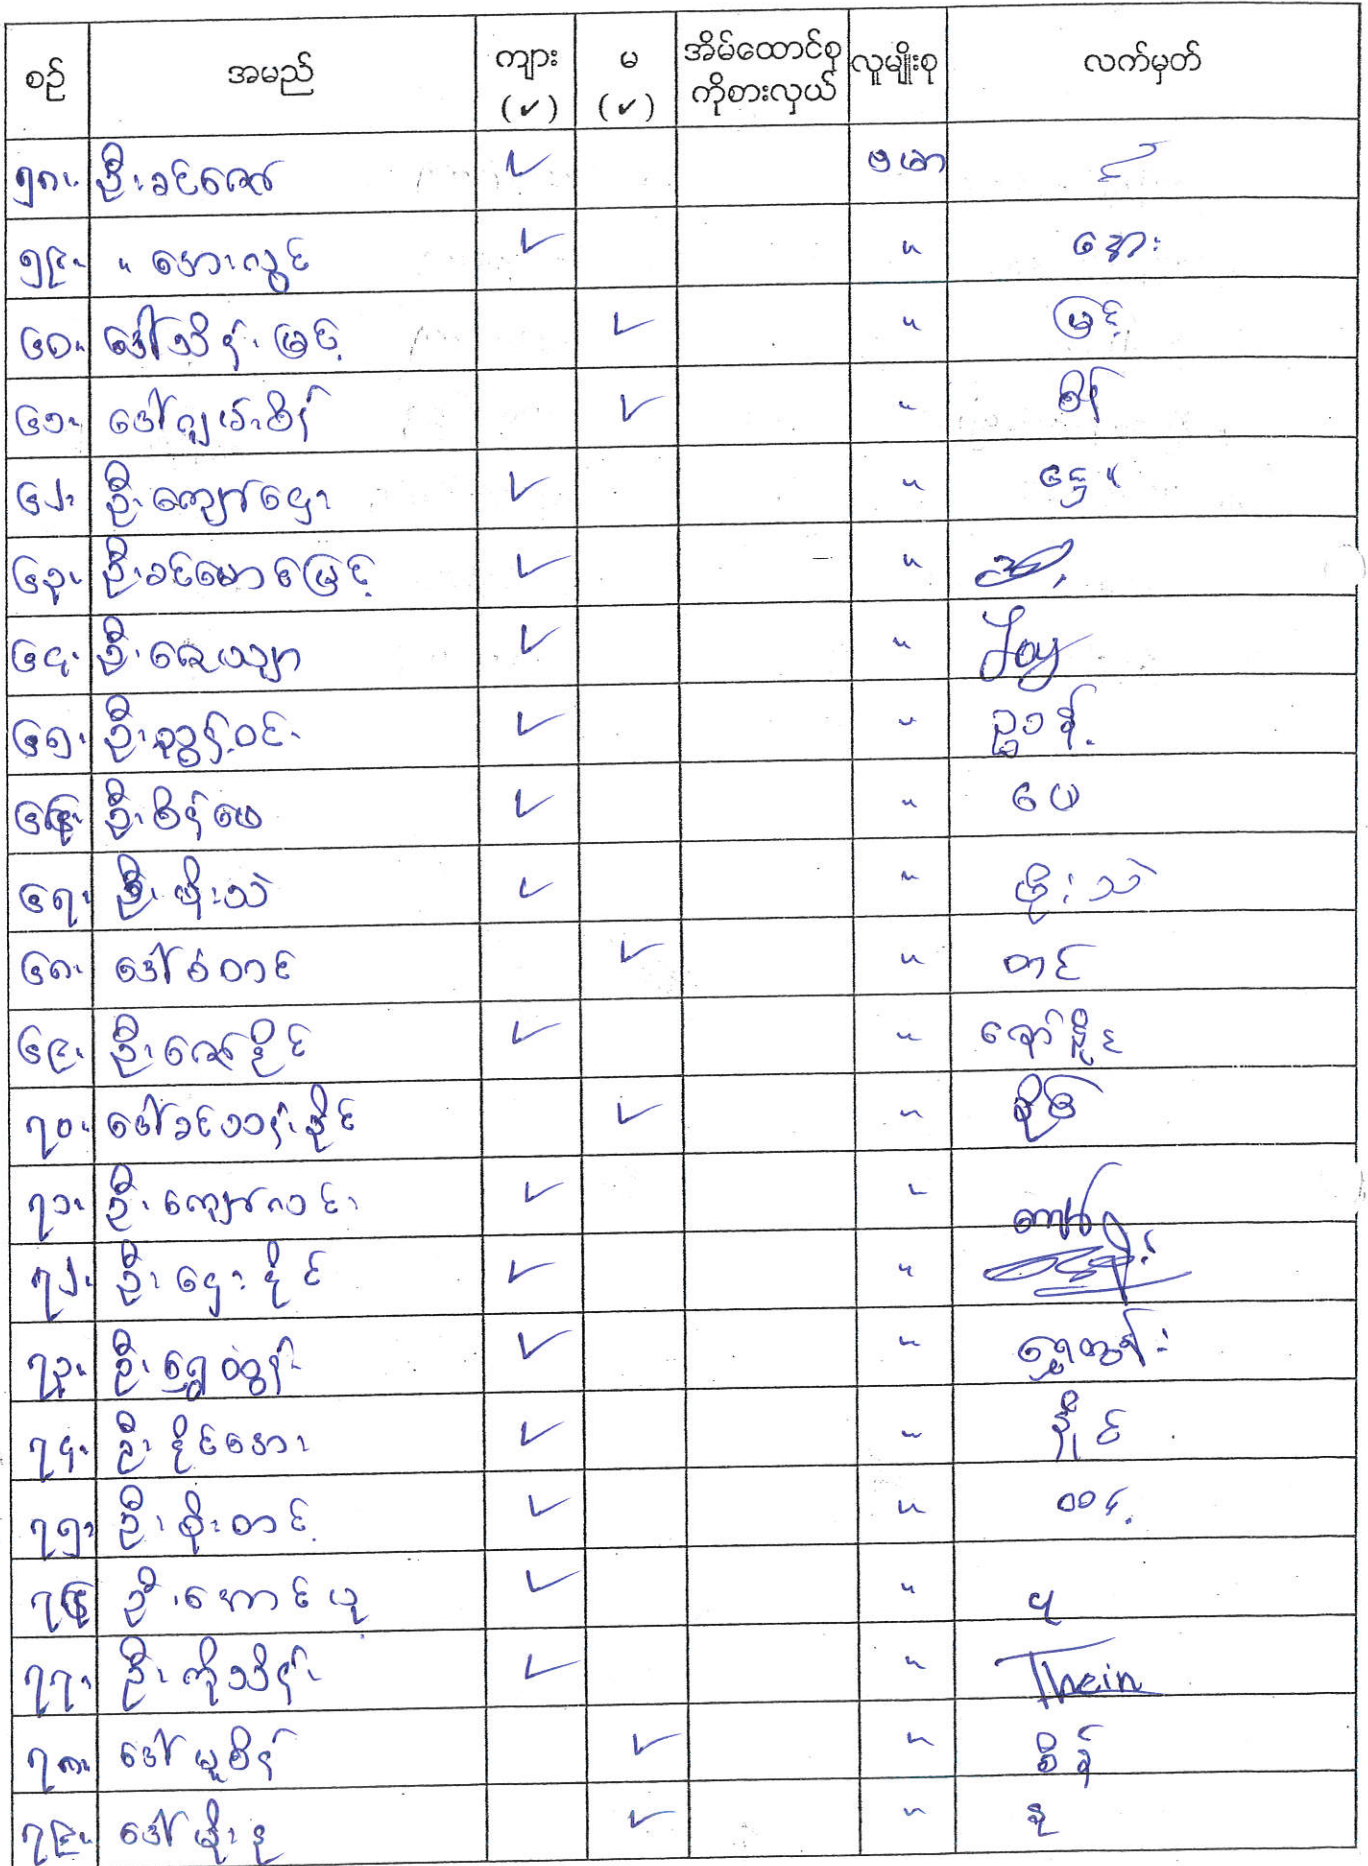 စဉ် အမည် ကျား (✓) မ (✓) အိမ်ထောင်စု ကိုစားလှယ် လူမျိုးစု လက်မှတ်
၅၈။ ဦးခင်ဇော် ✓ ဗမာ
၅၉။ " အေးလွင် ✓ " အေး
၆၀။ ဒေါ်သိန်းမြင့် ✓ " မြင့်
၆၁။ ဒေါ်ဂျမ်းစိန် ✓ " စိန်
၆၂။ ဦးကျော်ဌေး ✓ " ဌေး
၆၃။ ဦးခင်မောင်မြင့် ✓ "
၆၄။ ဦးဇေယျာ ✓ " Joy
၆၅။ ဦးညွန့်ဝင်း ✓ "
၆၆။ ဦးစိန်မေ ✓ " မေ
၆၇။ ဦးဖိုးသဲ ✓ " ဖိုးသဲ
၆၈။ ဒေါ်စံတင် ✓ " တင်
၆၉။ ဦးဇော်နိုင် ✓ " ဇော်နိုင်
၇၀။ ဒေါ်ခင်သန်းနိုင် ✓ "
၇၁။ ဦးကျော်လင်း ✓ " ကျော်
၇၂။ ဦးဌေးနိုင် ✓ "
၇၃။ ဦးရွှေထွန်း ✓ " ရွှေထွန်း
၇၄။ ဦးနိုင်အေး ✓ " နိုင်
၇၅။ ဦးစိုးတင့် ✓ "
၇၆။ ဦးအောင်ယု ✓ " ယု
၇၇။ ဦးကိုသိန်း ✓ " Thein
၇၈။ ဒေါ်မူစိန် ✓ " စိန်
၇၉။ ဒေါ်မိုးနု ✓ " နု